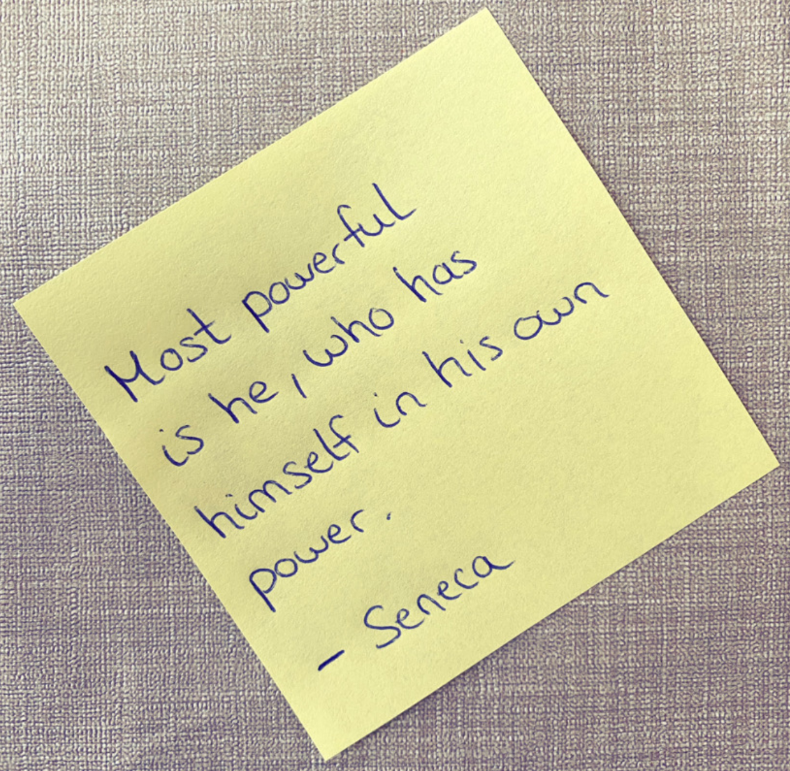 Most powerful
is he, who has
himself in his own
power.
- Seneca